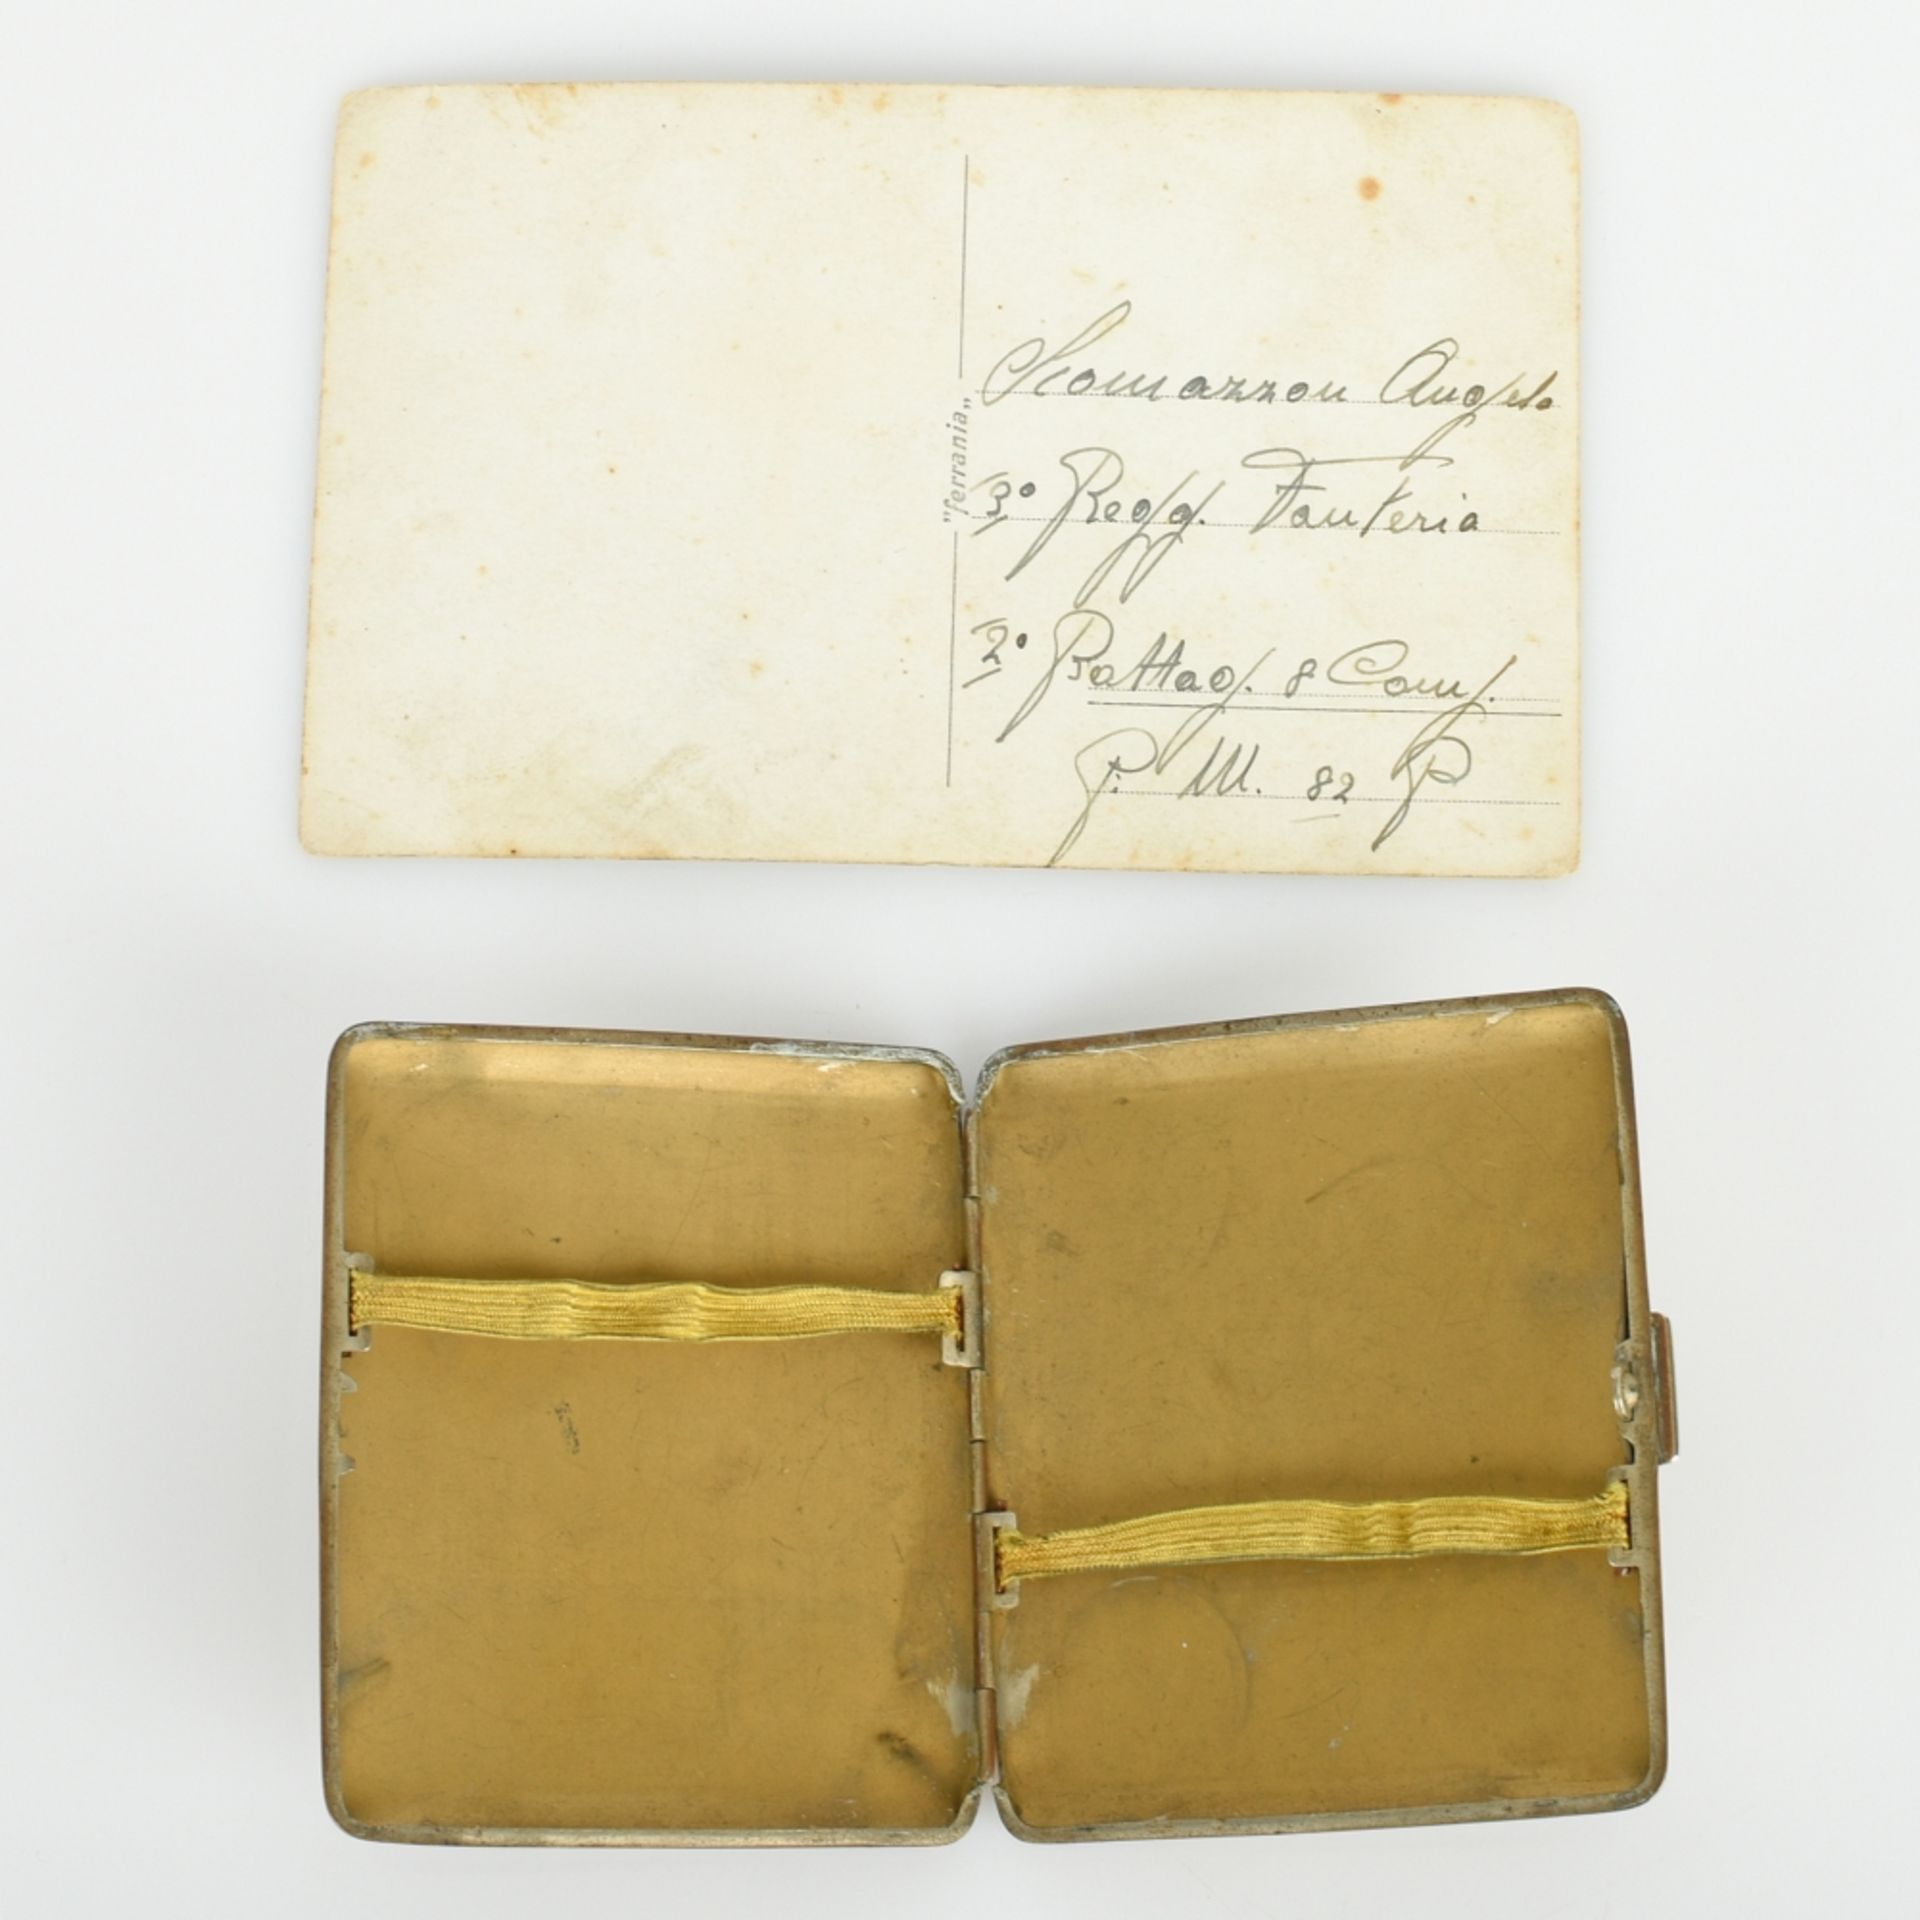 "ferrania"
Scomazzon Angelo
3º Regg. Fanteria
2º Battag. 8 Comp.
P. M. 82 P